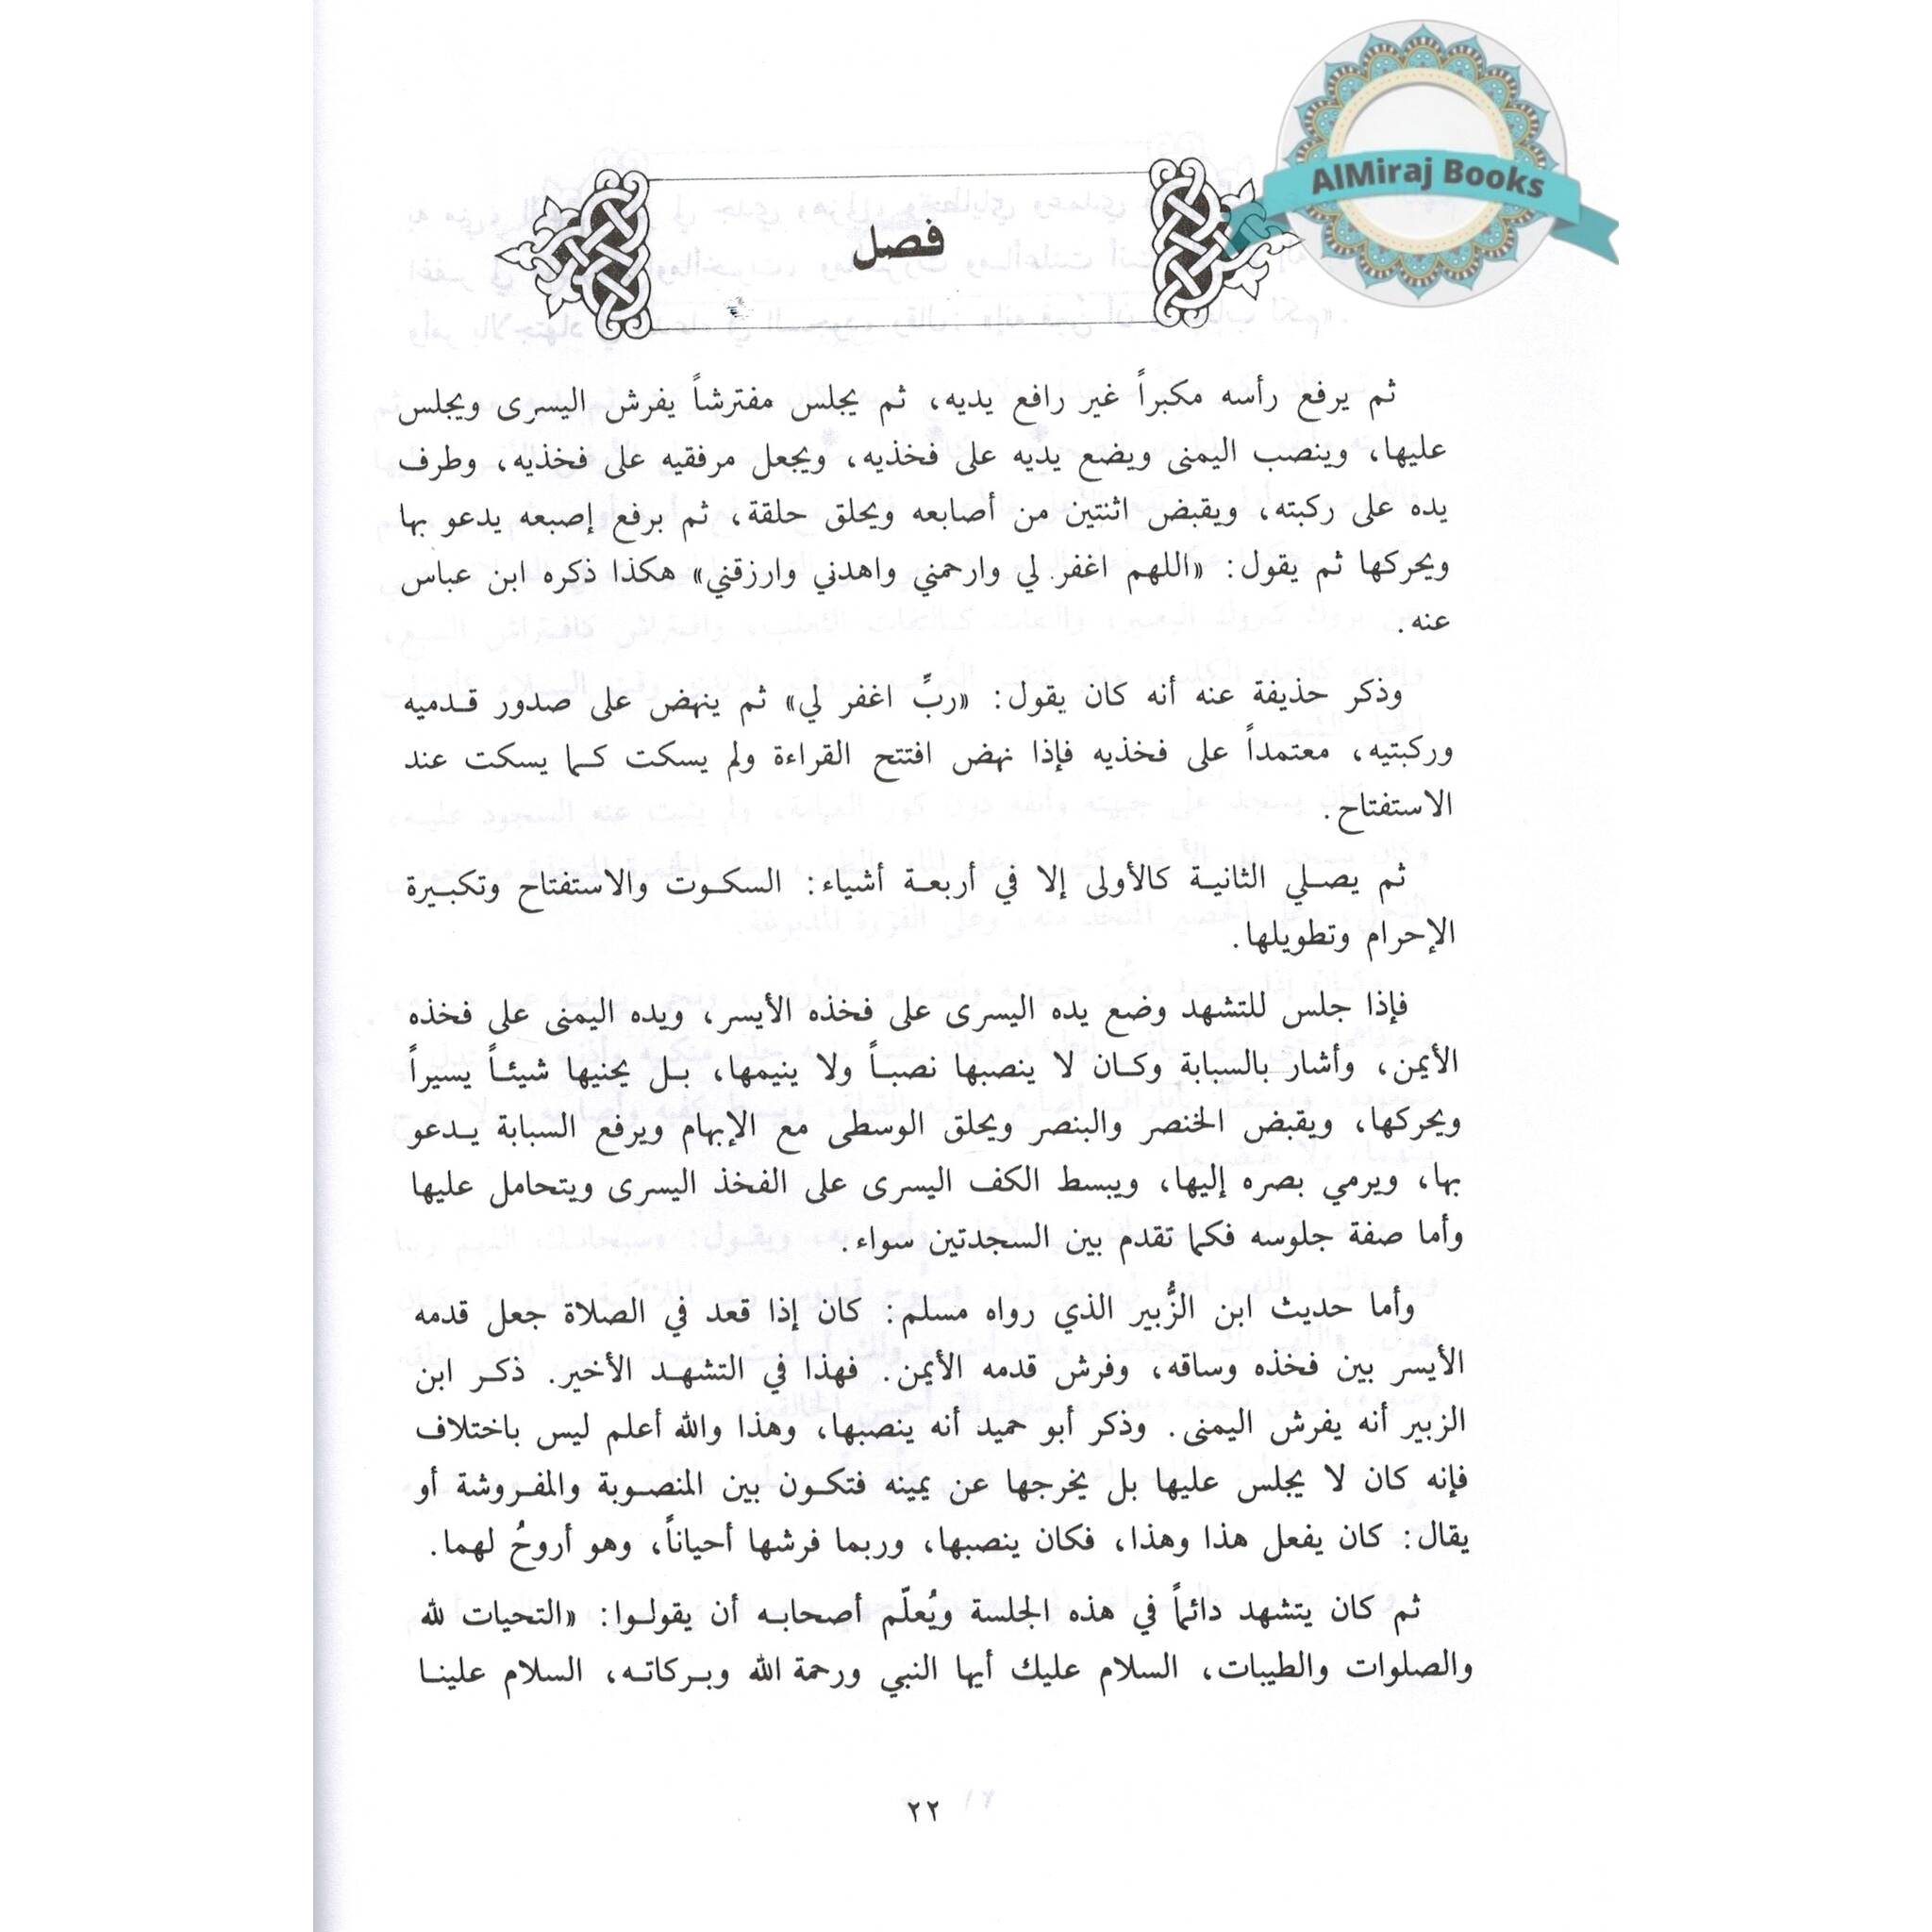 AlMiraj Books
فصل
ثم يرفع رأسه مكبراً غير رافع يديه، ثم يجلس مفترشاً يفرش اليسرى ويجلس
عليها، وينصب اليمنى ويضع يديه على فخذيه، ويجعل مرفقيه على فخذيه، وطرف
يده على ركبته، ويقبض اثنتين من أصابعه ويحلق حلقة، ثم برفع إصبعه يدعو بها
ويحركها ثم يقول: «اللهم اغفر لي وارحمني واهدني وارزقني» هكذا ذكره ابن عباس
عنه.
وذكر حذيفة عنه أنه كان يقول: «ربِّ اغفر لي» ثم ينهض على صدور قدميه
وركبتيه، معتمداً على فخذيه فإذا نهض افتتح القراءة ولم يسكت كما يسكت عند
الاستفتاح.
ثم يصلي الثانية كالأولى إلا في أربعة أشياء: السكوت والاستفتاح وتكبيرة
الإحرام وتطويلها.
فإذا جلس للتشهد وضع يده اليسرى على فخذه الأيسر، ويده اليمنى على فخذه
الأيمن، وأشار بالسبابة وكان لا ينصبها نصباً ولا ينيمها، بل يحنيها شيئاً يسيراً
ويحركها، ويقبض الخنصر والبنصر ويحلق الوسطى مع الإبهام ويرفع السبابة يدعو
بها، ويرمي بصره إليها، ويبسط الكف اليسرى على الفخذ اليسرى ويتحامل عليها
وأما صفة جلوسه فكما تقدم بين السجدتين سواء.
وأما حديث ابن الزُّبير الذي رواه مسلم: كان إذا قعد في الصلاة جعل قدمه
الأيسر بين فخذه وساقه، وفرش قدمه الأيمن. فهذا في التشهد الأخير. ذكر ابن
الزبير أنه يفرش اليمنى. وذكر أبو حميد أنه ينصبها، وهذا والله أعلم ليس باختلاف
فإنه كان لا يجلس عليها بل يخرجها عن يمينه فتكون بين المنصوبة والمفروشة أو
يقال: كان يفعل هذا وهذا، فكان ينصبها، وربما فرشها أحياناً، وهو أروحُ لهما.
ثم كان يتشهد دائماً في هذه الجلسة ويُعلّم أصحابه أن يقولوا: «التحيات لله
والصلوات والطيبات، السلام عليك أيها النبي ورحمة الله وبركاته، السلام علينا
٢٢